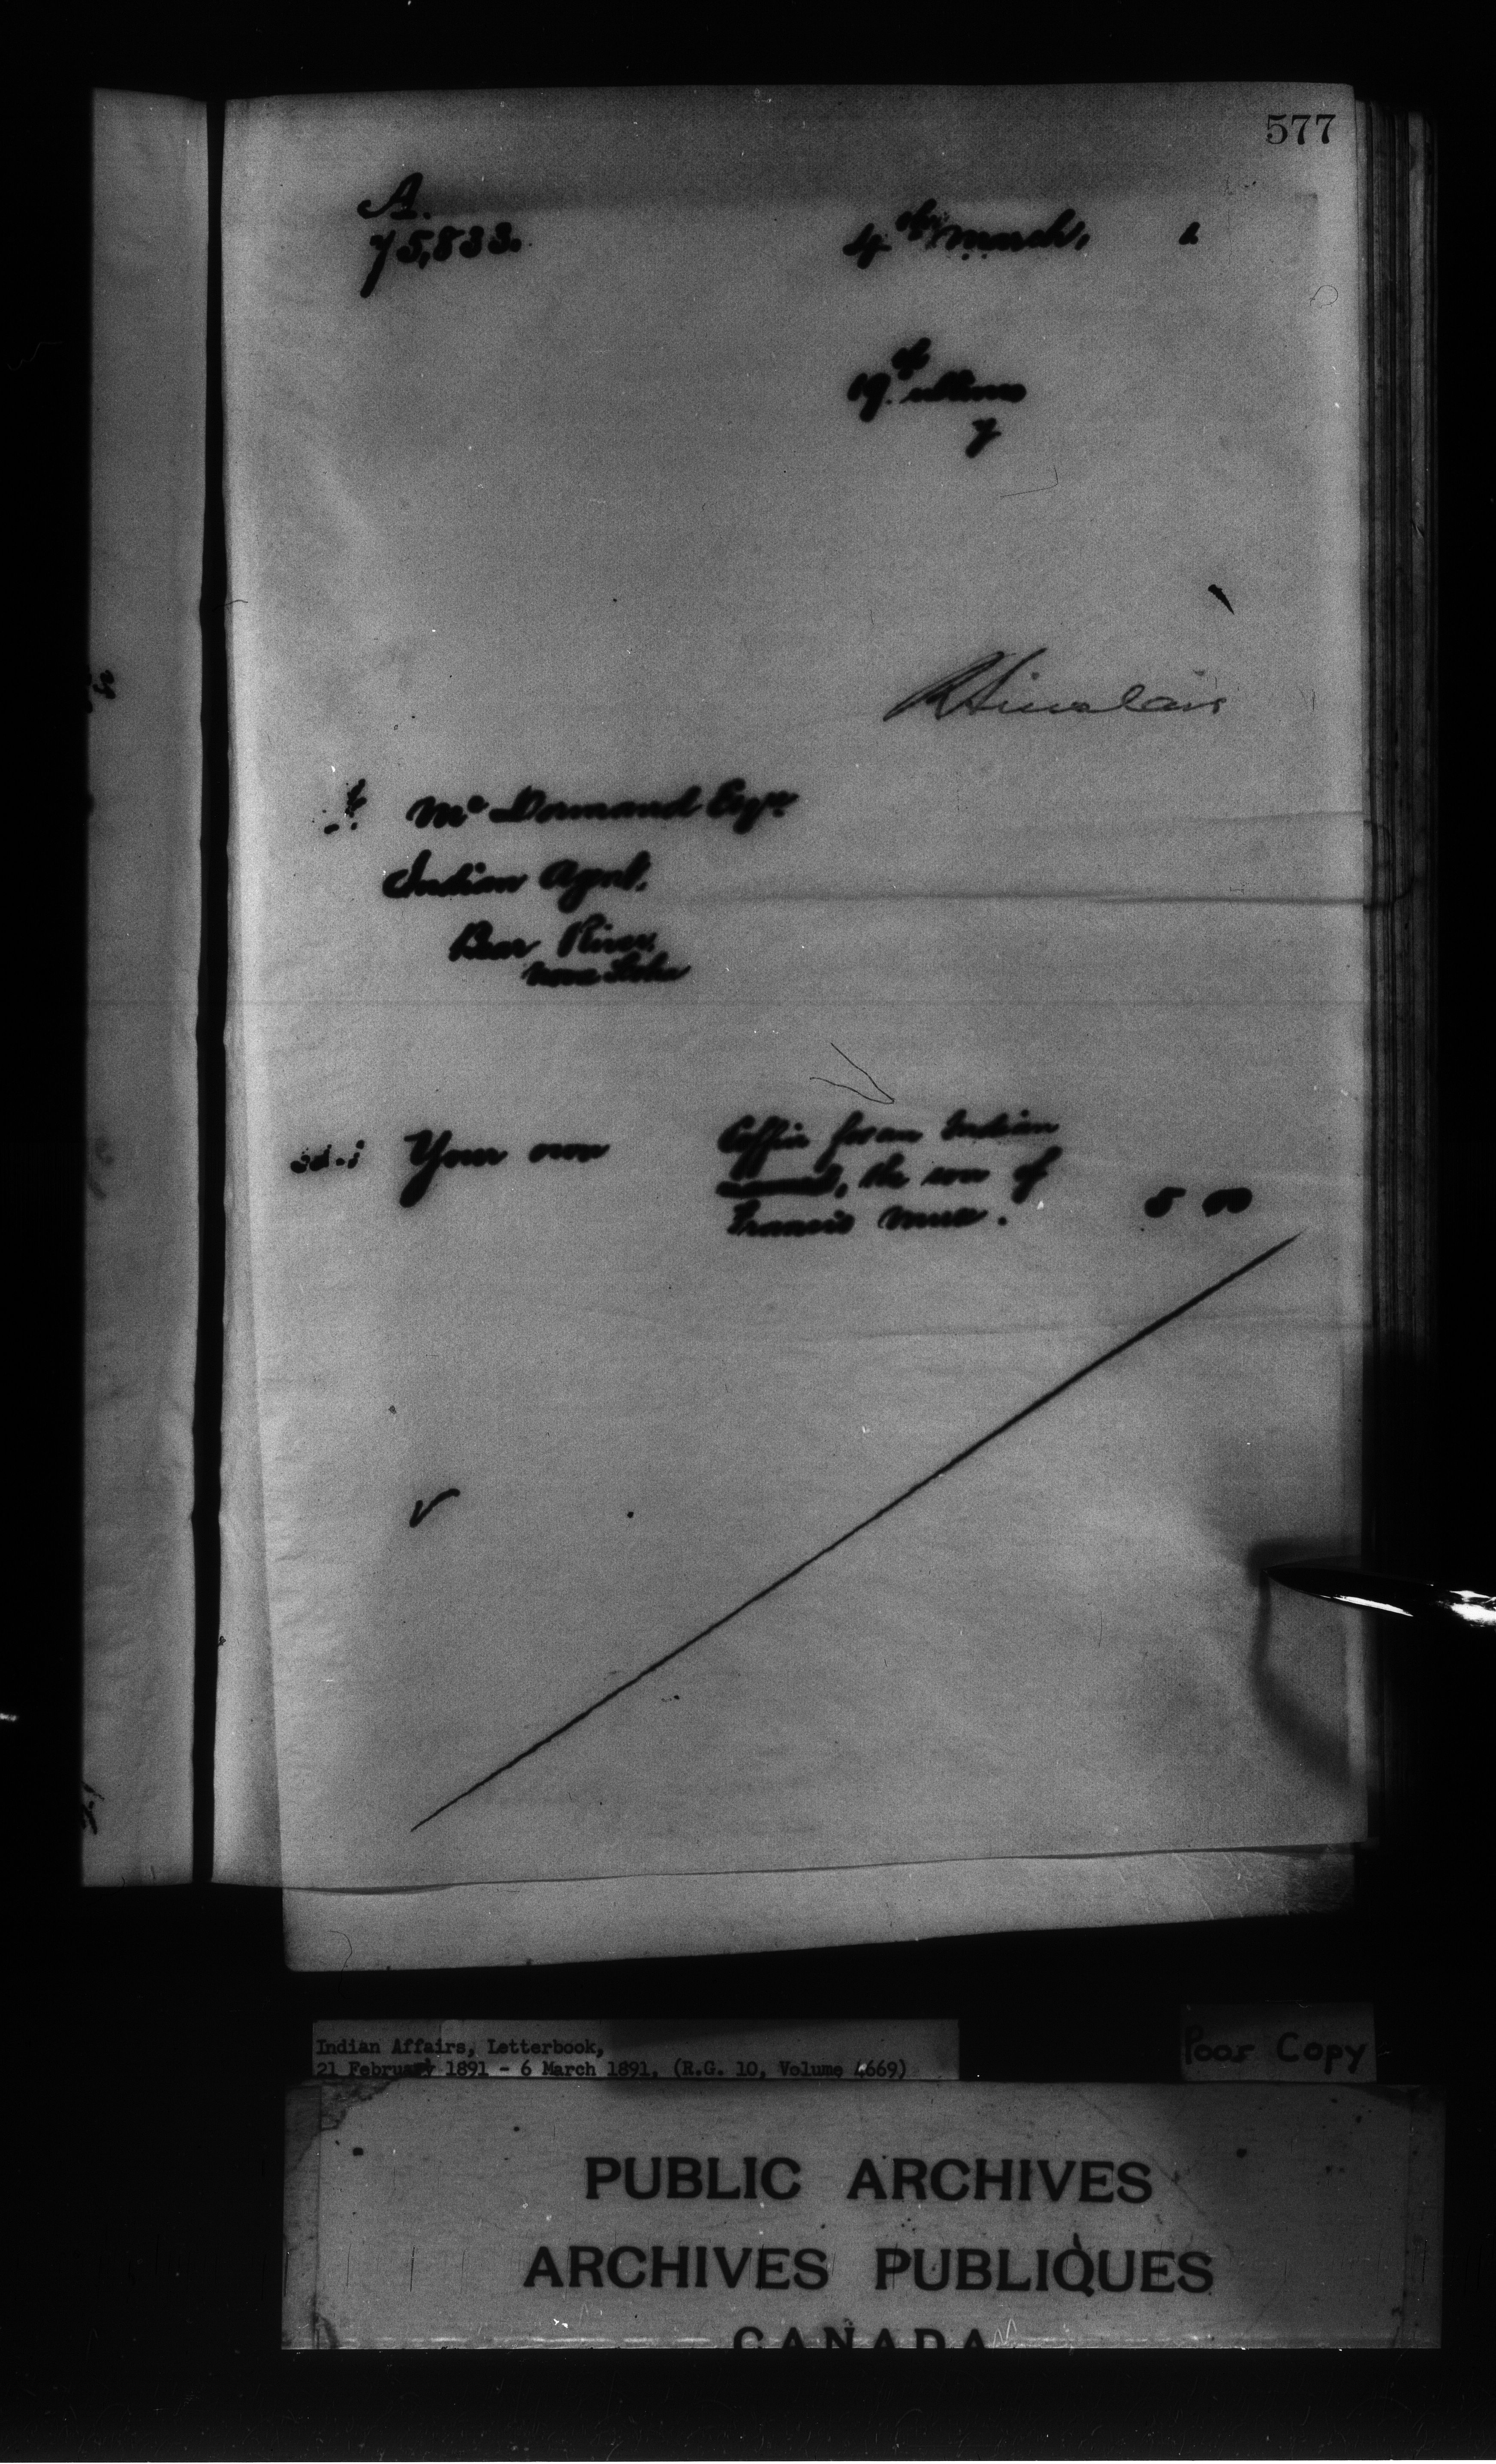 577
A.
75,833.
4th March, 1
19th ultimo
y
R Sinclair
F. McDormand Esqr.
Indian Agent,
Bear River,
Nova Scotia
Your own
Coffin for an Indian
the son of
Francis
5 00
Indian Affairs, Letterbook,
21 February 1891 - 6 March 1891, (R.G. 10, Volume 4669)
Poor Copy
PUBLIC ARCHIVES
ARCHIVES PUBLIQUES
CANADA